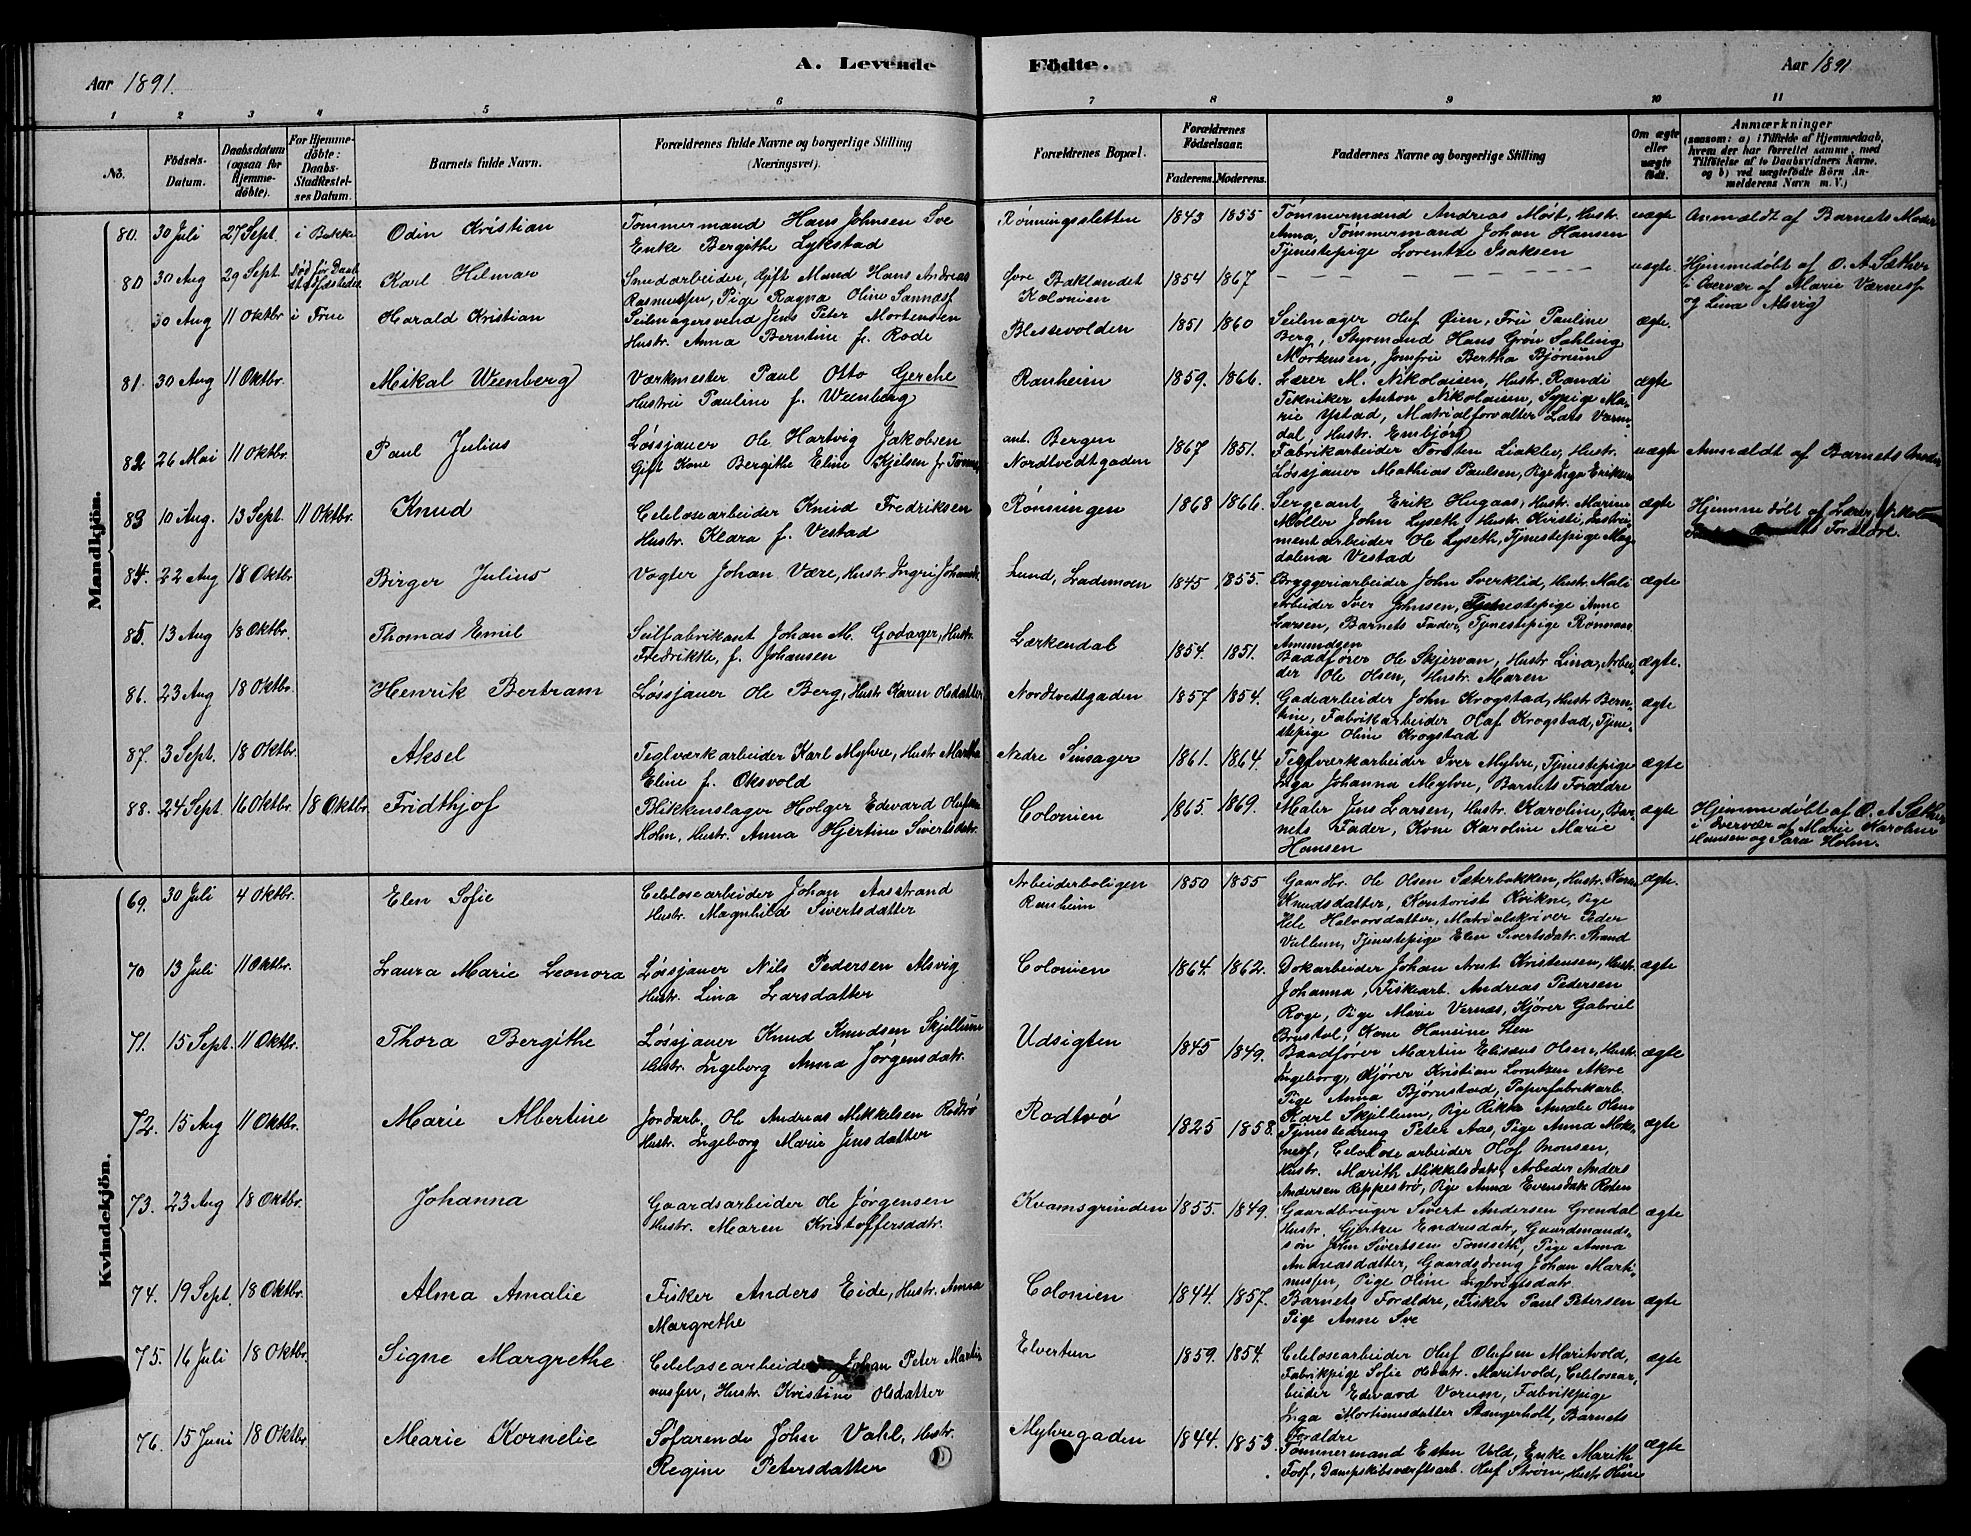 A. Levende Födte.
Aar 1891.
Aar 1891
1 2 3 4 5 6 7 8 9 10 11
No.
Födsels-Datum.
Daabsdatum (ogsaa for Hjemme-döbte).
For Hjemme-döbte: Daabs-Stadfæstel-ses Datum.
Barnets fulde Navn.
Forældrenes fulde Navne og borgerlige Stilling (Næringsvei).
Forældrenes Bopæl.
Forældrenes Födselsaar.
Faderens. Moderens.
Faddernes Navne og borgerlige Stilling
Om ægte eller uægte födt.
Anmærkninger
(saasom: a) i Tilfælde af Hjemmedaab, hvem der har forrettet samme, med Tilföielse af to Daabsvidners Navne, og b) ved uægtefödte Börn An-melderens Navn m. V.)
Mandkjön.
80. 30 Juli 27 Sept. i Bakke Odin Kristian
Tømmermand Hans Johnsen Sve
Enke Bergithe Lykstad
Rønningssletten 1843 1855
Tømmermand Andreas Møst, Hustr.
Anna, Tømmermand Johan Hansen
Tjenestepige Lorentze Isaksen
uægte Anmældt af Barnets Moder
80 30 Aug 29 Sept. Karl Hilmar
Smedarbeider, Gift Mand Hans Andreas
Rasmussen, Pige Ragna Oline Sannæss
Øvre Baklandet
Kolonien 1854 1867
uægte. Hjemmedøbt af O. A. Sæther
i Overvær af Marie Værness
og Lina Alsvig
30 Aug 11 Oktbr i Frue Harald Kristian
Seilmagersvend Jens Peter Mortensen
Hustr. Anna Berntine f. Rode
Blessevolden 1851 1860
Seilmager Oluf Øien, Fru Pauline
Berg, Styrmand Hans Grøn Sahling
Mortensen, Jomfru Bertha Bjørum
ægte.
81. 30 Aug 11 Oktbr. Mikal Weenberg
Værkmester Paul Otto Gerche
Hustru Pauline f. Weenberg
Ranheim 1859. 1866.
Lærer M. Nikolaisen, Hustr. Randi
Tekniker Anton Nikolaisen, Sypige Ma-
rie Ystad, Matrialforvalter Lars Værn-
dal, Hustr. Embjørg
ægte
82 26 Mai 11 Oktbr. Paul Julius
Løssjauer Ole Hartvig Jakobsen
Gift Kone Bergithe Eline Kjelsen f.
ant. Bergen
Nordtvedtgaden 1867 1851.
Fabrikarbeider Torsten Liaklev, Hustr.
Løssjauer Mathias Paulsen, Pige Inga Eriksen
uægte Anmældt af Barnets Moder
83 10 Aug. 13 Sept. 11 Oktbr. Knud
Celelosearbeider Knud Fredriksen
Hustr. Klara f. Vestad
Rønningen 1868 1866.
Sergeant Erik Hugaas, Hustr. Marine
Møller John Lyseth Hustr. Kirsti, Instru-
mentarbeider Ole Lyseth, Tjenestepige Mag-
dalena Vestad
ægte Hjemmedøbt af Lærer
Forældre.
84. 22 Aug 18 Oktbr. Birger Julius
Vogter Johan Være, Hustr. Ingri
Lund, Lademoen 1845 1855.
Bryggeriarbeider John Sverklid, Hustr. Mali
Arbeider Iver Johnsen, Tjenestepige Anne
Larsen, Barnets Fader, Tjenestepige
Amundsen
ægte
85 13 Aug 18 Oktbr. Thomas Emil
Seilfabrikant Johan M. Godager, Hustr.
Fredrikke, f. Johansen
Lærkendal 1854. 1851.
Baadfører Ole Skjervan, Hustr Lina, Arbei-
der Ole Olsen, Hustr. Maren
ægte.
86. 23 Aug 18 Oktbr. Henrik Bertram
Løssjauer Ole Berg, Hustr Karen Olsdatter
Nordtvedtgaden 1857 1854.
Gadearbeider John Krogstad, Hustr. Bern-
tine, Fabrikarbeider Olaf Krogstad, Tjene-
stepige Oline Krogstad
ægte
87. 3 Sept. 18 Oktbr. Aksel
Teglværkarbeider Karl Myhre, Hustr. Martha
Eline f. Oksvold
Nedre Sinsager 1861. 1864.
Teglværkarbeider Iver Myhre, Tjenestepige
Inga Johanna Myhre, Barnets Forældre
ægte
88. 24 Sept. 16 Oktbr. 18 Oktbr. Fridthjof
Blikkenslager Holger Edvard Olufsen
Holm, Hustr. Anna Hjertine Sivertsdatr.
Colonien 1865 1869.
Maler Jens Larsen, Hustr. Karoline, Bar-
nets Fader, Kone Karoline Marie
Hansen
ægte Hjemmedøbt af O. A. Sæther
i Overvær af Marie Karoline
Hansen og Sara Holm.
Kvindekjön.
69. 30 Juli 4 Oktbr. Elen Sofie
Celelosearbeider Johan Aasstrand
Hustr. Magnhild Sivertsdatter
Arbeiderboligen
Ranheim 1850 1855
Gaardbr. Ole Olsen Sæterbakken, Hustr. Karen
Knudsdatter, Kontorist Kvikne, Pige
Hele Halvorsdatter, Matrialskriver Peder
Vullum, Tjenestepige Elen Sivertsdatr. Strand
ægte.
70 13 Juli 11 Oktbr. Laura Marie Leonora
Løssjauer Nils Pedersen Alsvig
Hustr. Lina Larsdatter
Colonien 1864. 1862.
Dokarbeider Johan Arnt Kristensen, Hustr.
Johanna, Fiskearb. Andreas Pedersen
Roge, Pige Marie Vernæs, Kjører Gabriel
Brustol, Kone Hansine Sten
ægte
71. 15 Sept. 11 Oktbr. Thora Bergithe
Løssjauer Knud Knudsen Skjellum
Hustr. Ingeborg Anna Jørgensdatr.
Udsigten 1845 1849.
Baadfører Martin Elisæus Olsen, Hustr.
Ingeborg, Kjører Kristian Lorntzen Akre
Pige Anna Bjørnstad, Paperfabrikarb.
Karl Skjellum, Pige Rikke Amalie Olsen
ægte
72. 15 Aug 11 Oktbr. Marie Albertine
Jordarb. Ole Andreas Mikkelsen Rodtrø
Hustr. Ingeborg Marie Jensdatter
Rodtrø 1825 1858.
Tjenestedreng Peter Aas, Pige Anna Mok-
ness, Celelosearbeider Olof Monsen,
Hustr. Marith Mikkelsdatr, Arbeder Anders
Andersen Reppestrø, Pige Anna Evensdatr Roten
ægte
73. 23 Aug 18 Oktbr. Johanna
Gaardsarbeider Ole Jørgensen
Hustr. Maren Kristoffersdatr.
Kvamsgrinden 1855. 1849.
Gaardbruger Sivert Andersen Grendal
Hustr. Gjertru Endresdatr, Gaardmands-
søn John Sivertsen Tomseth, Pige Anna
Andreasdatter, Gaardsdreng Johan Marti-
nussen, Pige Oline
ægte
74. 19 Sept. 18 Oktbr. Alma Amalie
Fisker Anders Eide, Hustr. Anna
Margrethe
Colonien 1844. 1857.
Barnets Forældre, Fisker Paul Petersen
Pige Anne Sve
ægte
75. 16 Juli 18 Oktbr. Signe Margrethe
Celelosearbeider Johan Peter Marti-
nussen, Hustr. Kristine Olsdatter
Elvertun 1859. 1854.
Celelosearbeider Oluf Olufsen Maritvold,
Fabrikpige Sofie Olsdatr. Maritvold, Celelosear-
beider Edvard Vorum, Fabrikpige
Inga Mortinusdatter Stangerholt, Barnets
Forældre
ægte
76. 15 Juni 18 Oktbr. Marie Kornelie
Søfarende John Vahl, Hustr.
Regine Petersdatter
Myhregaden 1844. 1853.
Tømmermand Esten Vold, Enke Marith
Foss, Dampskibsværftsarb. Oluf Strøm, Hustr Oline
ægte